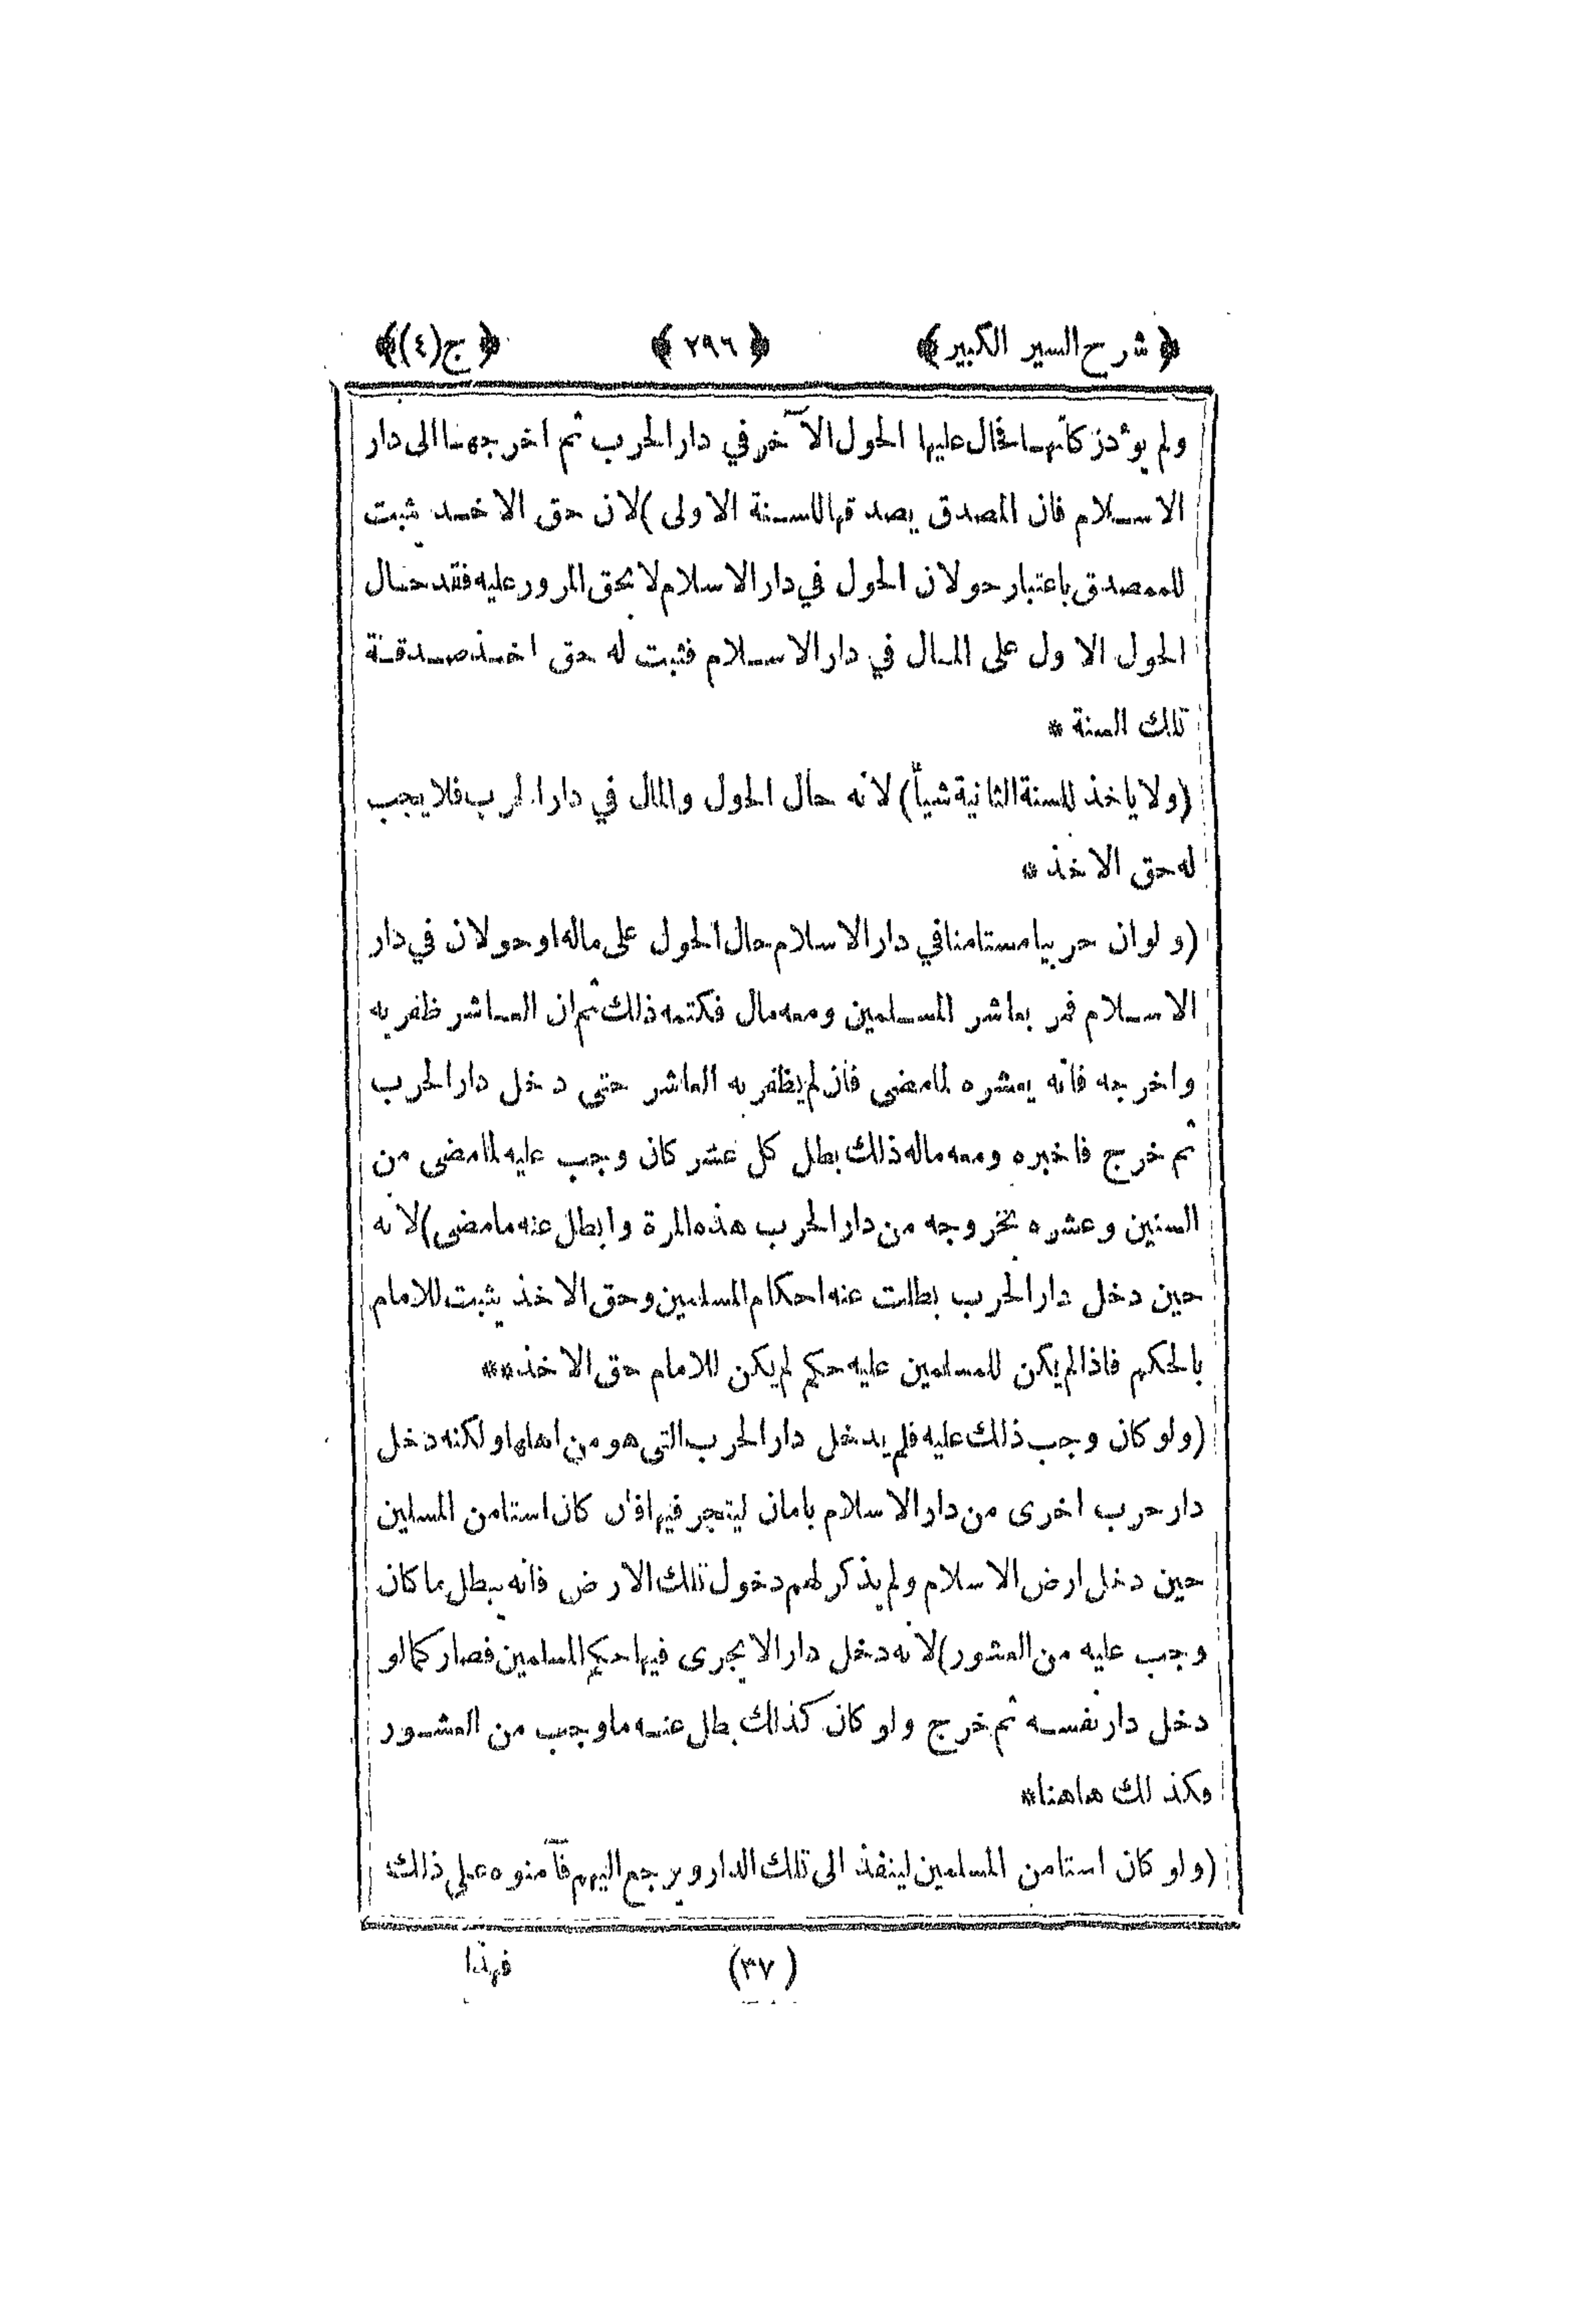 ﴿ شرح السير الكبير ﴾ ﴿ ٢٩٦ ﴾ ﴿ ج (٤) ﴾
ولم يؤد زكاتها فحال عليها الحول الآخر في دار الحرب ثم اخرجها الى دار
الاسلام فان المصدق يصدقها للسنة الاولى) لان حق الاخذ ثبت
للمصدق باعتبار حولان الحول في دار الاسلام لا بحق المرور عليه فقد حال
الحول الاول على المال في دار الاسلام فثبت له حق اخذ صدقة
تلك السنة *
(ولا ياخذ للسنة الثانية شيأ) لانه حال الحول والمال في دار الحرب فلا يجب
له حق الاخذ *
(ولوان حربيا مستامنا في دار الاسلام حال الحول على ماله او حولان في دار
الاسلام فمر بعاشر المسلمين ومعه مال فكتمه ذلك ثم ان العاشر ظفر به
واخرجه فانه يعشره لما مضى فان لم يظفر به العاشر حتى دخل دار الحرب
ثم خرج فاخبره ومعه ماله ذلك بطل كل عشر كان وجب عليه لما مضى من
السنين وعشره بخروجه من دار الحرب هذه المرة وابطل عنه ما مضى) لانه
حين دخل دار الحرب بطلت عنه احكام المسلمين وحق الاخذ يثبت للامام
بالحكم فاذا لم يكن للمسلمين عليه حكم لم يكن للامام حق الاخذ **
(ولو كان وجب ذلك عليه فلم يدخل دار الحرب التي هو من اهلها ولكنه دخل
دار حرب اخرى من دار الاسلام بامان ليتجر فيها فان كان استامن المسلمين
حين دخل ارض الاسلام ولم يذكر لهم دخول تلك الارض فانه يبطل ما كان
وجب عليه من العشور) لانه دخل دارا لا يجرى فيها حكم المسلمين فصار كما لو
دخل دار نفسه ثم خرج ولو كان كذلك بطل عنه ما وجب من العشور
وكذلك هاهنا *
(ولو كان استامن المسلمين لينفذ الى تلك الدار ويرجع اليهم فآمنوه على ذلك
(٣٧) فهذا